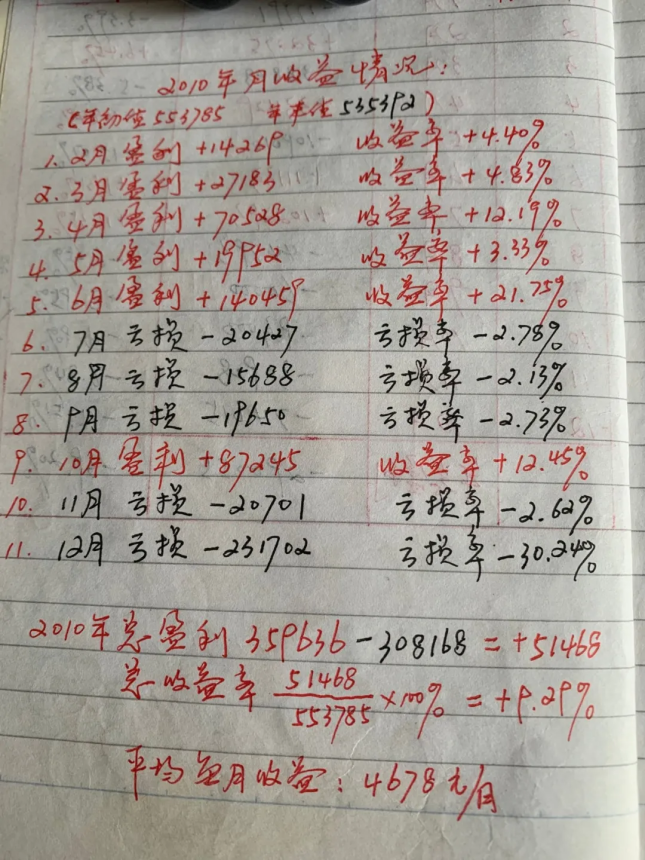 2010年月收益情况:
(年初值553785 年末值535392)
1. 2月盈利 +14269 收益率 +4.40%
2. 3月盈利 +27183 收益率 +4.83%
3. 4月盈利 +70528 收益率 +12.19%
4. 5月盈利 +19952 收益率 +3.33%
5. 6月盈利 +140459 收益率 +21.75%
6. 7月亏损 -20427 亏损率 -2.78%
7. 8月亏损 -15688 亏损率 -2.13%
8. 9月亏损 -19650 亏损率 -2.73%
9. 10月盈利 +87245 收益率 +12.45%
10. 11月亏损 -20701 亏损率 -2.62%
11. 12月亏损 -231702 亏损率 -30.24%
2010年总盈利 359636 - 308168 = +51468
总收益率 51468/553785 ×100% = +9.29%
平均每月收益: 4678元/月